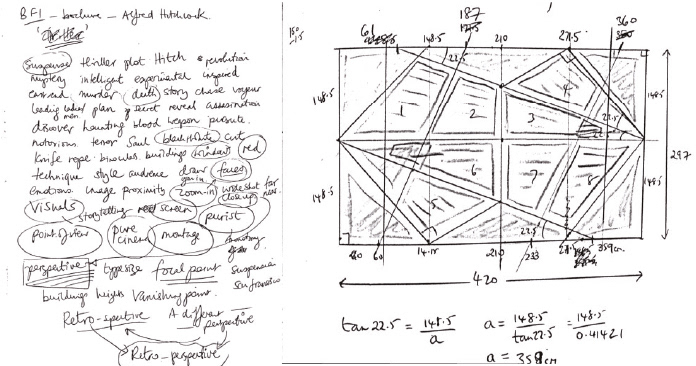 BFI - brochure - Alfred Hitchcock.
Suspense thriller plot Hitch revolution
mystery intelligent experimental inspired
murder death story chase voyeur
leading ladies men plan secret reveal assassination
discover haunting blood weapon pursuit
notorious tenor Saul black+white cut
Knife rope binoculars buildings windows red
technique style audience draw faces
emotions image proximity zoom-in wide shot far
close up near
Visuals storytelling screen purist
point of view pure cinema montage
perspective typesize focal point suspension
buildings heights Vanishing point. San Francisco
Retro-spective A different perspective
Retro-perspective
187
360
61
148.5 210 271.5
22.5
148.5
148.5
148.5
148.5
297
1 2 3 4
5 6 7 8
22.5
22.5
60 210 233 359cm
420
tan 22.5 = 148.5 / a
a = 148.5 / tan 22.5 = 148.5 / 0.41421
a = 358cm